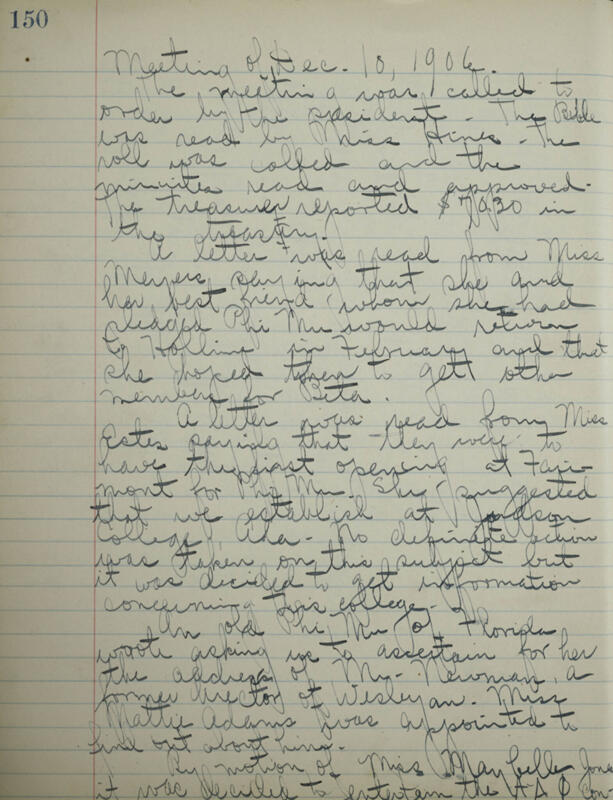 150
Meeting of Dec. 10, 1906.
The meeting was called to
order by the president - The Bible
was read by Miss Hines - The
roll was called and the
minutes read and approved.
The treasurer reported in
the treasury.
A letter was read from Miss
Meyers saying that she and
her best friend whom she had
pledged Phi Mu would return
to Hollins in February and that
she hoped then to get other
members for Beta.
A letter was read from Miss
Estes saying that they were to
have their first opening at Fair-
mont for Phi Mu. She suggested
that we establish at Judson
College, Ala - No definite action
was taken on this subject but
it was decided to get information
concerning this college -
An old Phi Mu of Florida
wrote asking us to ascertain for her
the address of Mr. Newman, a
former director of Wesleyan. Miss
Mattie Adams was appointed to
find out about him.
By motion of Miss Maybelle Jones
it was decided to entertain the Con